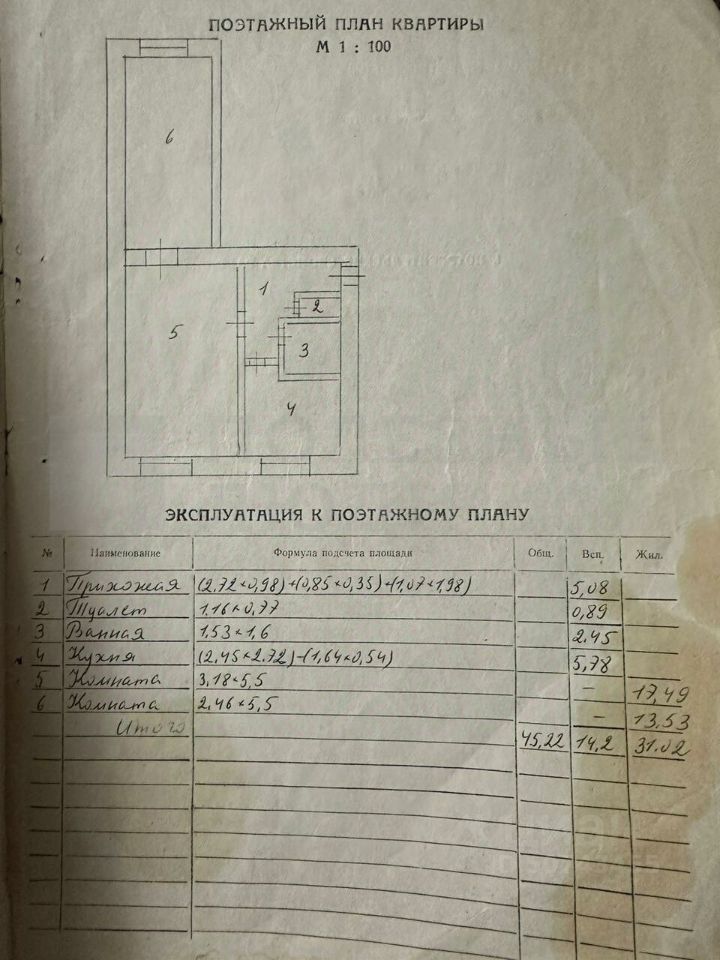 ПОЭТАЖНЫЙ ПЛАН КВАРТИРЫ
М 1 : 100
6
1
2
5
3
4
ЭКСПЛУАТАЦИЯ К ПОЭТАЖНОМУ ПЛАНУ
№ Наименование Формула подсчета площади Общ. Всп. Жил.
1 Прихожая (2,72×0,98)+(0,85×0,35)+(1,07×1,98) 5,08
2 Туалет 1.16×0,77 0,89
3 Ванная 1.53×1,6 2.45
4 Кухня (2,45×2.72)-(1,64×0,54) 5,78
5 Комната 3,18×5,5 – 17,49
6 Комната 2,46×5,5 – 13.53
Итого 45,22 14,2 31.02